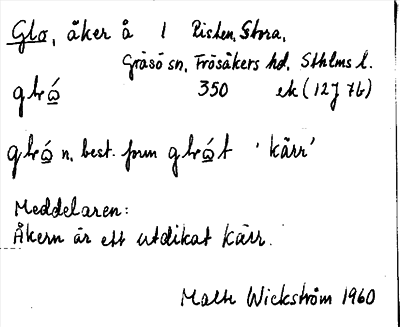 Glo, åker å 1 Risten, Stora,
Gräsö sn, Frösåkers hd, Sthlms l.
350 ek (12J 7b)
n. best. form 'kärr'
Meddelaren:
Åkern är ett utdikat kärr.
Malte Wickström 1960